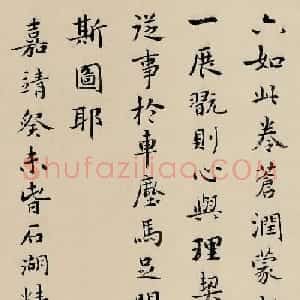 六如此卷蒼潤蒙
一展翫則心與理契
從事於車塵馬足間
斯圖耶
嘉靖癸未眷石湖精
Shufaziliao.com